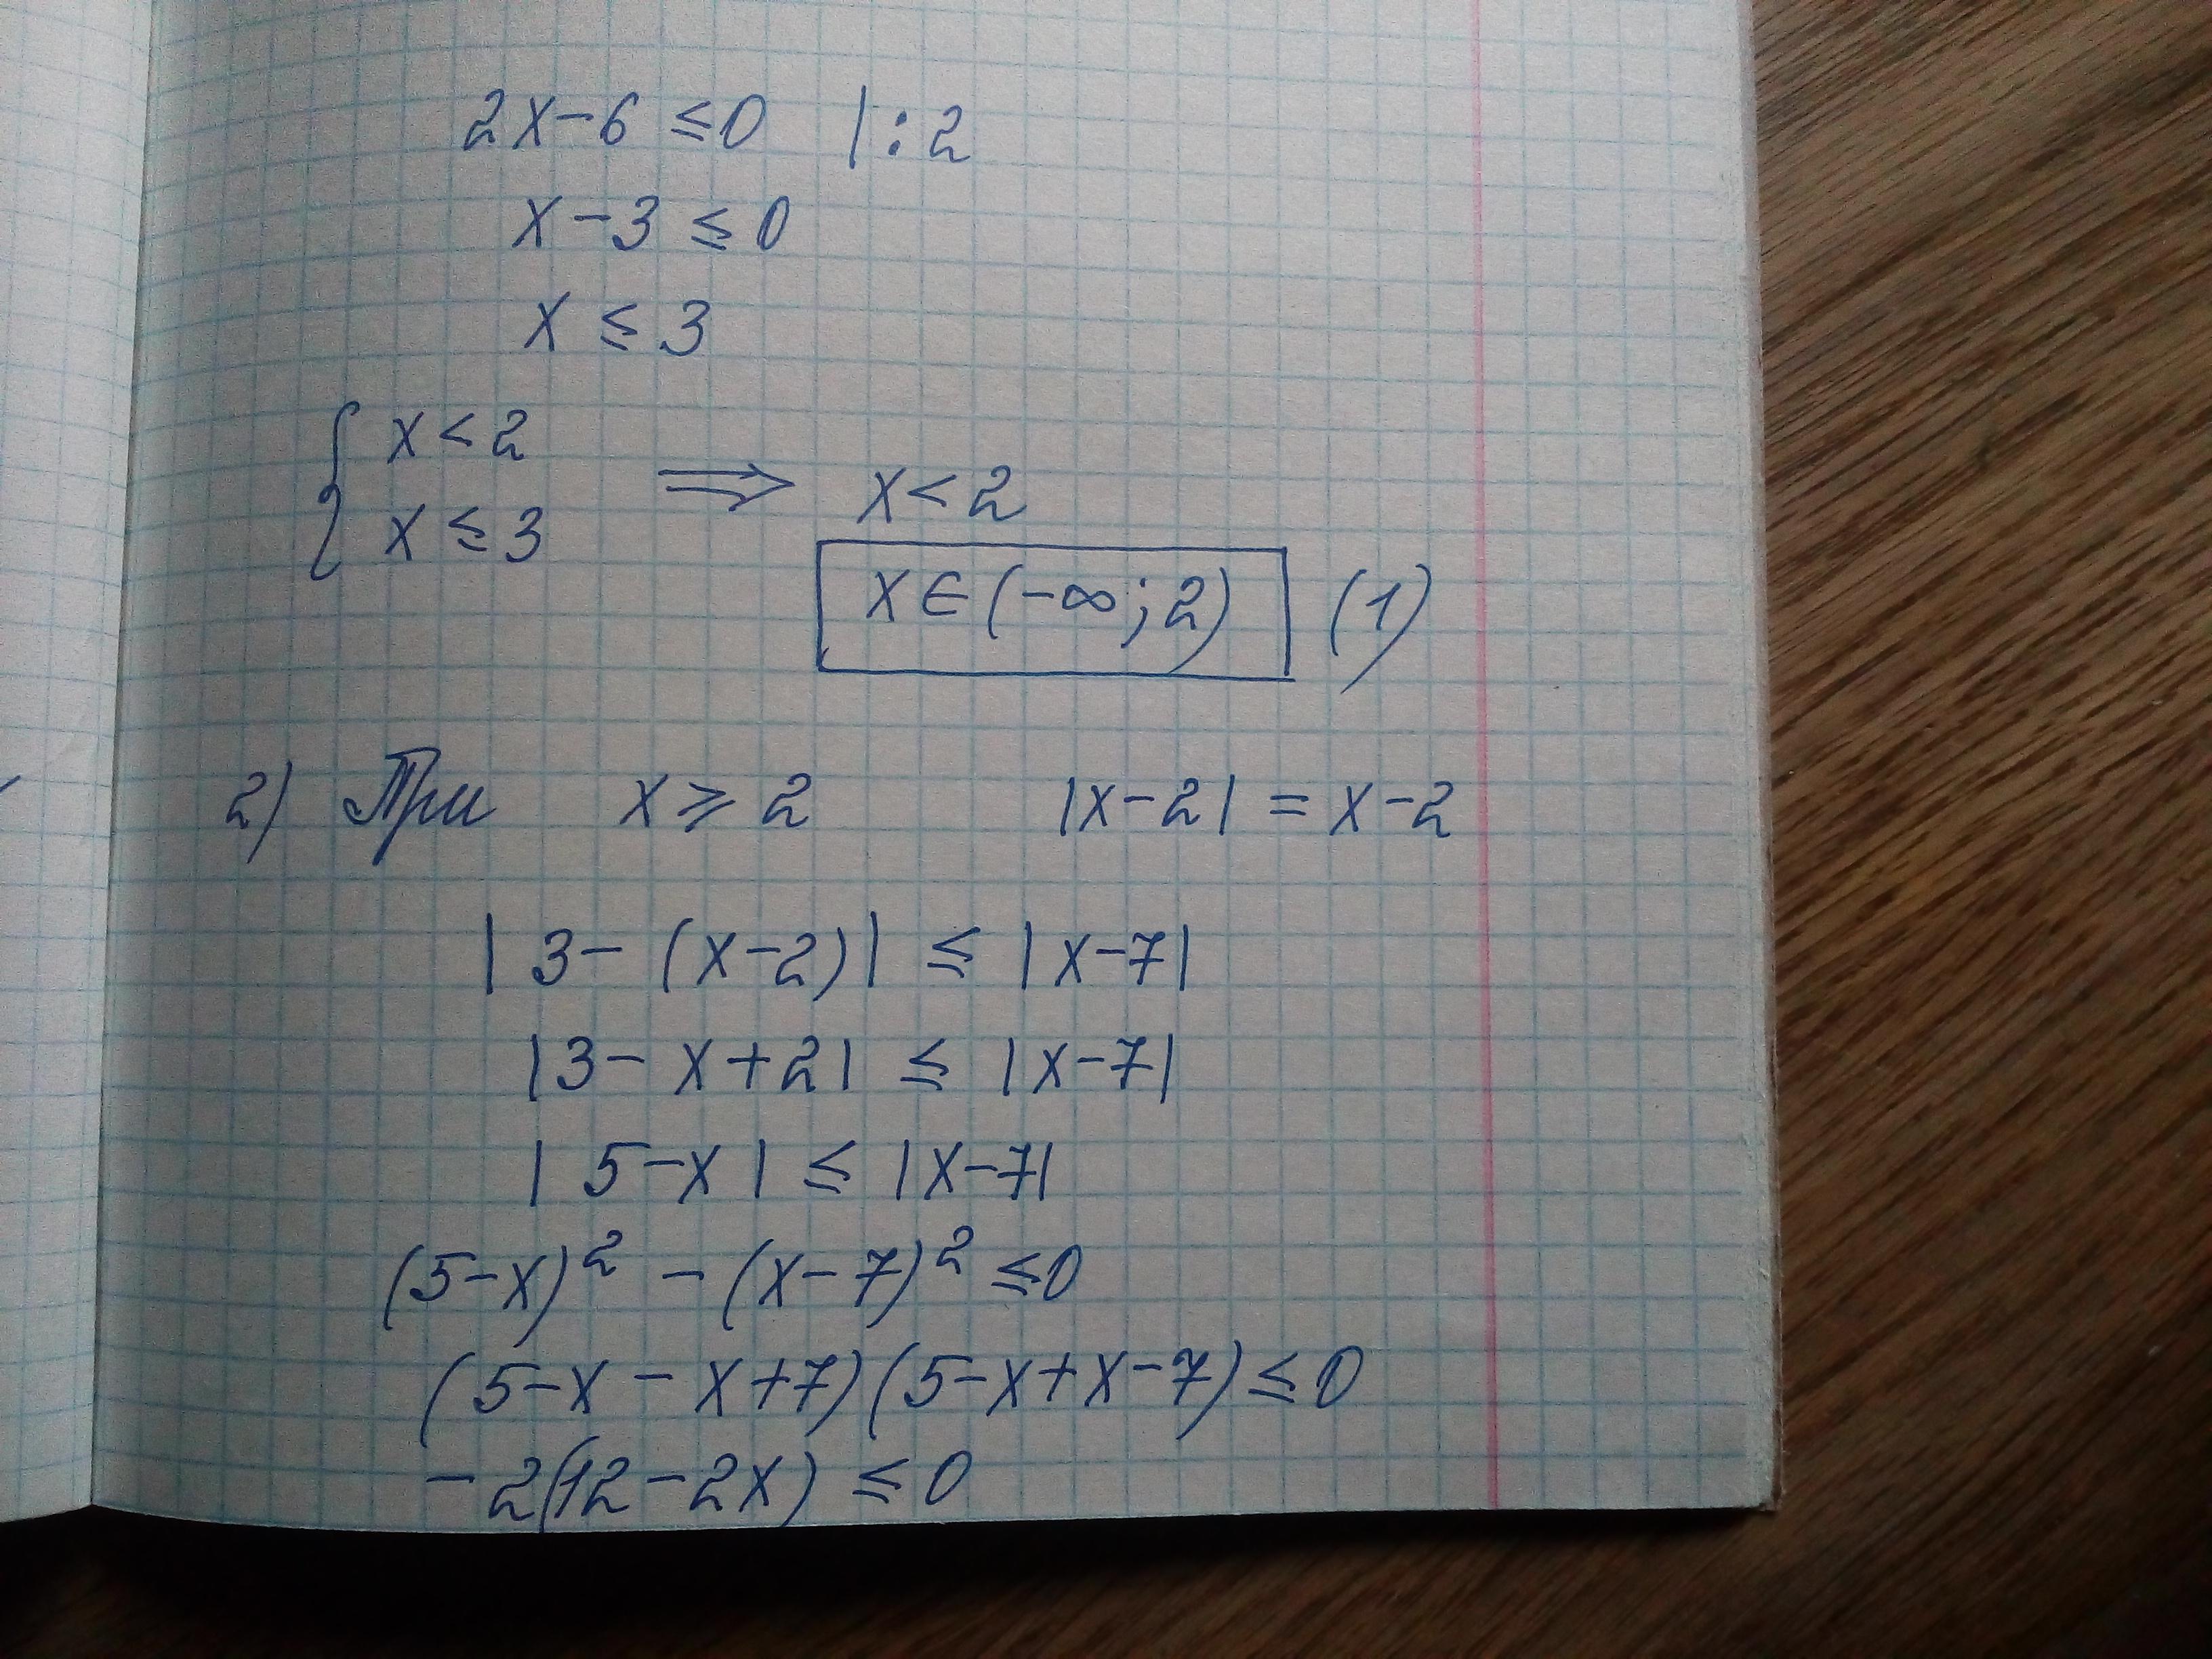 2x-6 ≤0 |:2
x-3 ≤ 0
x ≤ 3
{ x<2
x ≤ 3 ⟹ x<2
x∈(-∞;2) (1)
2) При x ⩾ 2 |x-2| = x-2
| 3- (x-2)| ≤ |x-7|
|3- x+2| ≤ |x-7|
| 5-x | ≤ |x-7|
(5-x)² - (x-7)² ≤0
(5-x - x+7)(5-x+x-7)≤0
- 2(12-2x) ≤0